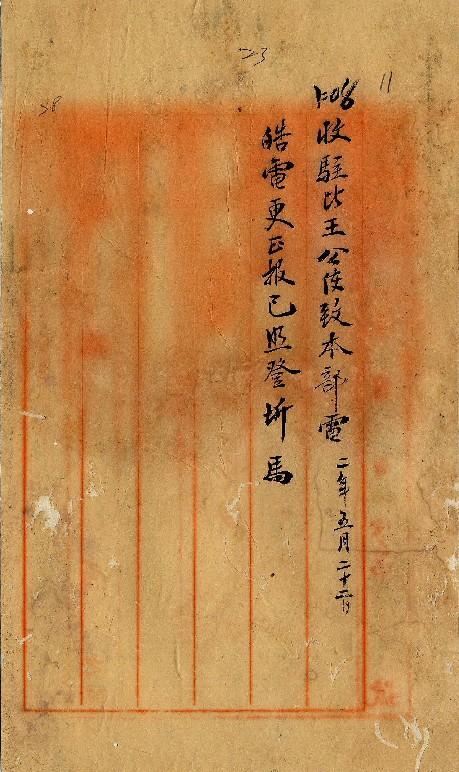 11
23
28
收駐比王公使致本部電 二年五月二十二日
皓電更正报已照登圻馬